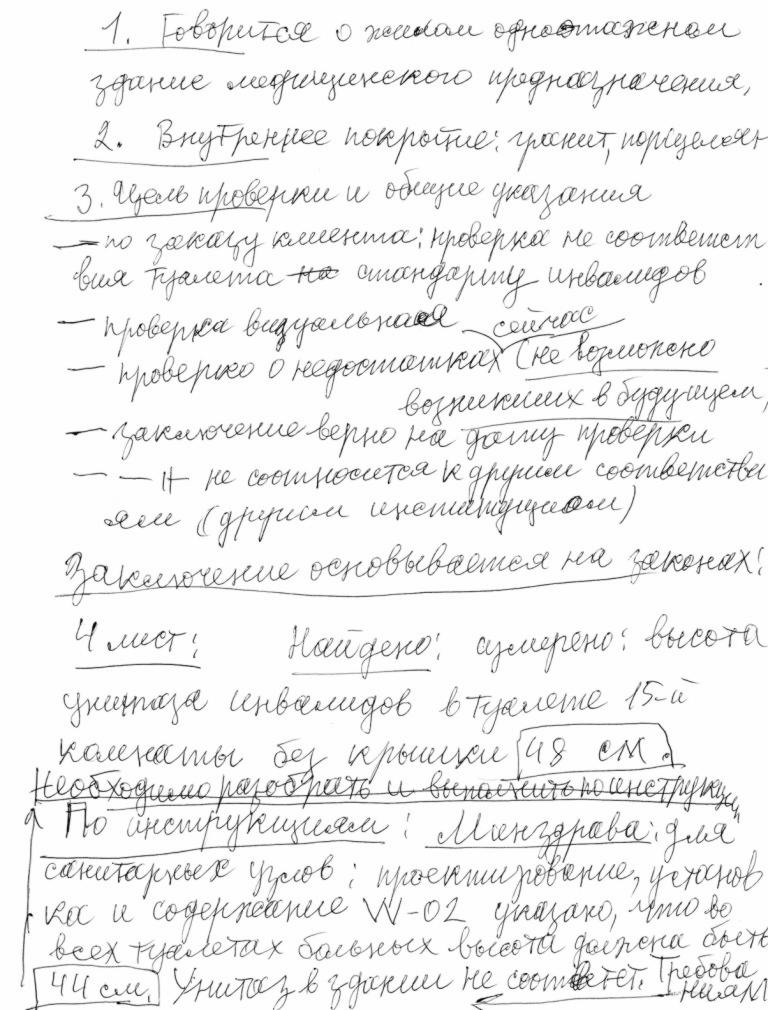 1. Говорится о жилом одноэтажном
здание медицинского предназначения,
2. Внутреннее покрытие: гранит, порцелян
3. Цель проверки и общие указания
— по заказу клиента: проверка не соответст
вия туалета на стандарту инвалидов
— проверка визуальная
сейчас
— проверка о недостатках (не возможно
возникших в будущем,
— заключение верно на дату проверки
— —〃— не соотносится к другим соответстви
ям (другим инстанциям)
Заключение основывается на законах:
4 лист: Найдено: измерено: высота
унитаза инвалидов в туалете 15-й
комнаты без крышки 48 см.
Необходимо разобрать и выполнить по инструкции
По инструкциям: Минздрава: для
санитарных узлов: проектирование, установ
ка и содержание W-02 указано, что во
всех туалетах больных высота должна быть
44 см. Унитаз в здании не соответст. Требова
ниям